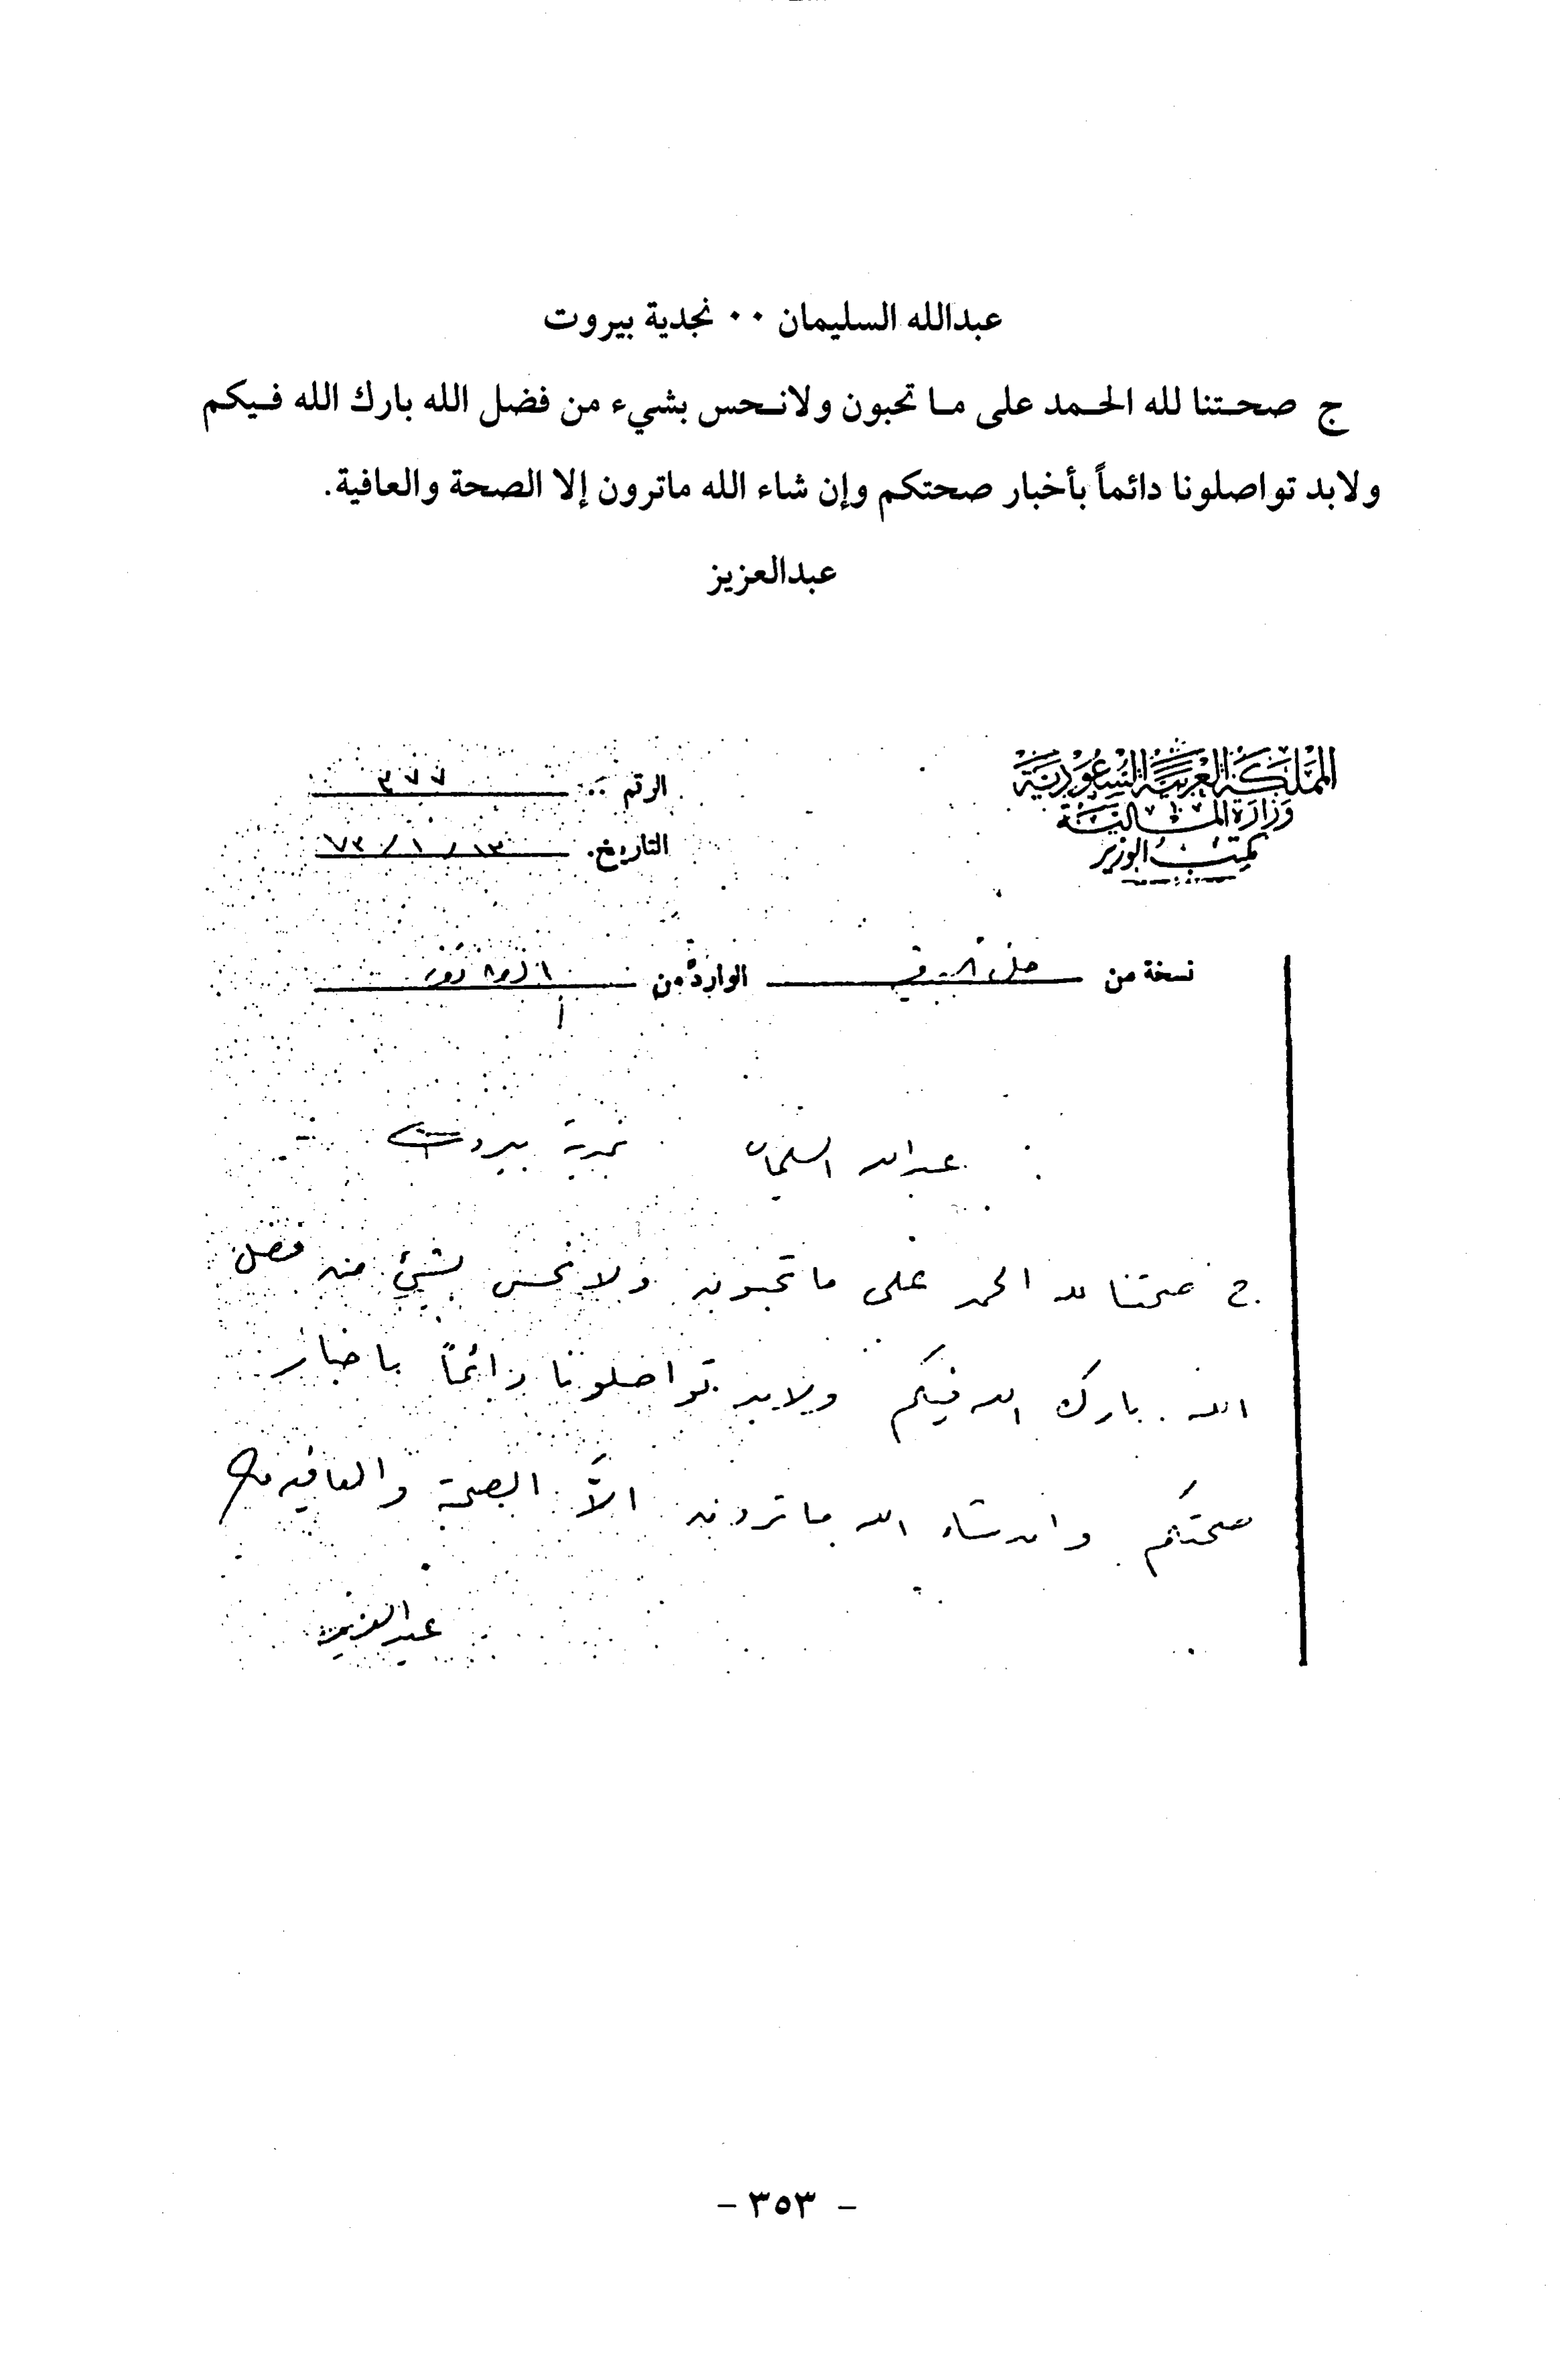 عبدالله السليمان ٠٠ نجدية بيروت
ج صحتنا لله الحمد على ما تحبون ولانحس بشيء من فضل الله بارك الله فيكم
ولابد تواصلونا دائماً بأخبار صحتكم وإن شاء الله ماترون إلا الصحة والعافية.
عبدالعزيز
المملكة العربية السعودية
وزارة المالية
مكتب الوزير
الرقم ٣٧٧
التاريخ ١٣ / ١ / ٧٣
نسخة من الواردة من
عبدالله السليمان نجدية بيروت
ج صحتنا لله الحمد على ما تحبون ولا نحس بشيئ من فضل
الله بارك الله فيكم ولابد تواصلونا دائماً باخبار
صحتكم وان شاء الله ما ترون الاَّ الصحة والعافيه
عبدالعزيز
- ٣٥٣ -